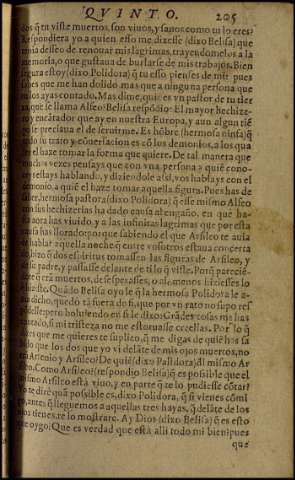 QVINTO. 205
dos q̃ tu viste muertos, son viuos, y sanos como tu lo eres:
Respondiera yo a quien esso me dixesse (dixo Belisa) que
tenia desseo de renouar mis lagrimas, trayendomelos a la
memoria, o que gustaua de burlarse de mis trabajos. Bien
segura estoy (dixo Polidora) q̃ tu esso pienses de mi: pues
sabes que me han dolido mas que a ninguna persona que
tu los ayas contado. Mas dime, quien es vn pastor de tu tier
ra, que se llama Alfeo? Belisa respondio: El mayor hechize-
ro y encãtador que ay en nuestra Europa, y aun algun tiẽ
po se preciaua el de seruirme. Es hõbre (hermosa ninfa) q̃
todo su trato y conuersacion es cõ los demonios, a los qua
les el haze tomar la forma que quiere. De tal manera que
muchas vezes pensays que con vna persona a quiẽ cono-
ceys estays hablando, y
demonio, a quiẽ el haze tomar aquella figura. Pues has de
saber, hermosa pastora (dixo Polidora) q̃ esse mismo Alfeo
con sus hechizerias ha dado causa al engaño, en que ha-
sta aora has viuido, y a las infinitas lagrimas que por esta
causa has llorado: porque sabiendo el que Arsileo te auia
de hablar aquella noche q̃ entre vosotros estaua concerta
do, hizo q̃ dos espiritus tomassen las figuras de Arsileo, y
de su padre, y passasse delante de ti lo q̃ viste. Porq̃ parecie-
dote q̃ erã muertos, desesperasses, o a lo menos hiziesses lo
que heziste. Quãdo Belisa oyo lo q̃ la hermosa Polidora le a-
uia dicho, quedò tã fuera de si, que por vn rato no supo res
põdelle: pero boluiendo en si le dixo: Grãdes cosas me has
contado, si mi tristeza no me estoruasse creellas. Por lo q̃
dizes que me quieres te suplico, q̃ me digas de quiẽ has sa
bido que los dos que yo vi delãte de mis ojos muertos, no
erã Arsenio y Arsileo? De quiẽ (dixo Polidora) del mismo Ar
sileo. Como Arsileo? (respondio Belisa) q̃ es possible que el
mismo Arsileo està viuo, y en parte q̃ te lo pudiesse cõtar?
Yo te dire quã possible es, dixo Polidora, q̃ si vienes cõmi
go, antes q̃ lleguemos a aquellas tres hayas, q̃ delãte de los
ojos tienes, te lo mostrare. Ay Dios (dixo Belisa) q̃ es esto
que oygo: Que es verdad que està alli todo mi bien: pues
que